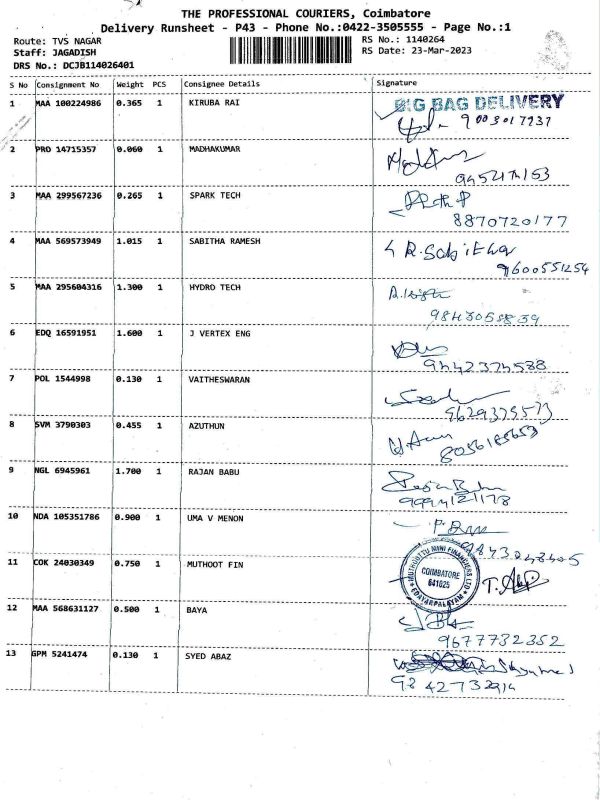 THE PROFESSIONAL COURIERS, Coimbatore
Delivery Runsheet - P43 - Phone No.:0422-3505555 - Page No.:1
Route: TVS NAGAR RS No.: 1140264
Staff: JAGADISH RS Date: 23-Mar-2023
DRS No.: DCJB114026401
S No Consignment No Weight PCS Consignee Details Signature
1 MAA 100224986 0.365 1 KIRUBA RAI BIG BAG DELIVERY
9003017937
2 PRO 14715357 0.060 1 MADHAKUMAR
3 MAA 299567236 0.265 1 SPARK TECH
8870720177
4 MAA 569573949 1.015 1 SABITHA RAMESH R. Sabitha
9600551254
5 MAA 295604316 1.300 1 HYDRO TECH
9843058839
6 EDQ 16591951 1.600 1 J VERTEX ENG
9442374588
7 POL 1544998 0.130 1 VAITHESWARAN
9629375573
8 SVM 3790303 0.455 1 AZUTHUN
8056185653
9 NGL 6945961 1.700 1 RAJAN BABU
9994121178
10 NDA 105351786 0.900 1 UMA V MENON
11 COK 24030349 0.750 1 MUTHOOT FIN MUTHOOTTU MINI FINANCIERS LTD COIMBATORE 641025 EDAYARPALAYAM
12 MAA 568631127 0.500 1 BAYA
9677732352
13 GPM 5241474 0.130 1 SYED ABAZ